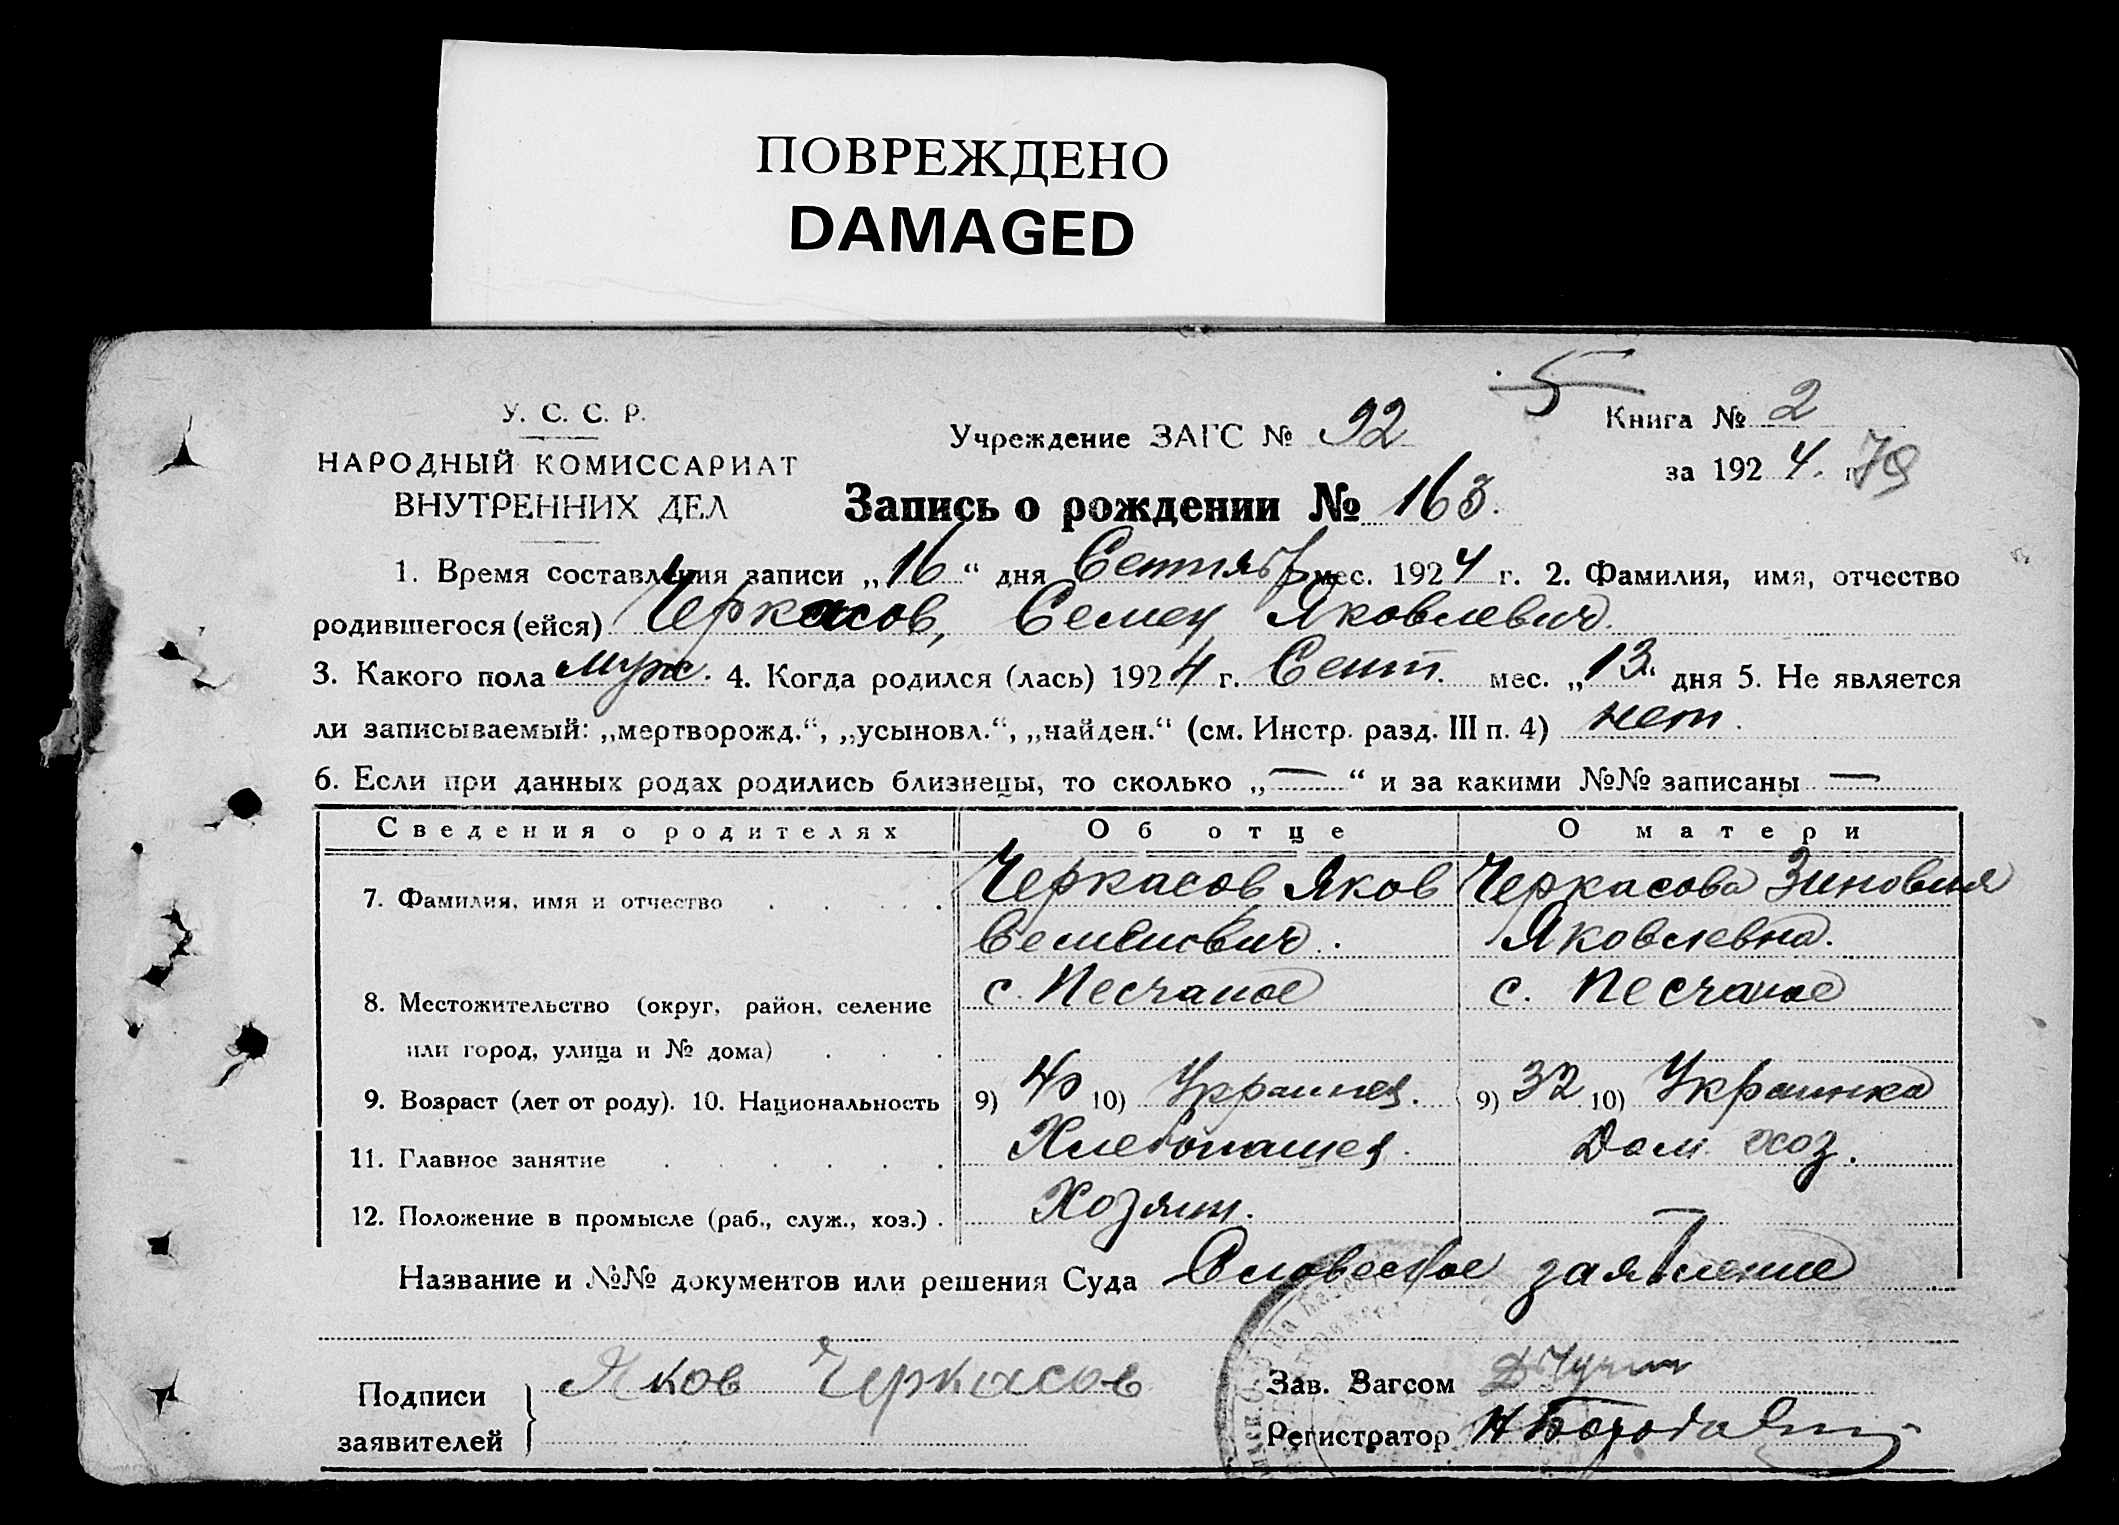 ПОВРЕЖДЕНО
DAMAGED
5
У. С. С. Р.
НАРОДНЫЙ КОМИССАРИАТ
ВНУТРЕННИХ ДЕЛ
Учреждение ЗАГС № 92
Книга № 2
за 1924. г. 79
Запись о рождении № 163.
1. Время составления записи „16“ дня Сентябр мес. 1924 г. 2. Фамилия, имя, отчество
родившегося (ейся) Черкасов, Семен Яковлевич.
3. Какого пола муж. 4. Когда родился (лась) 1924 г. Сент. мес. „13“ дня 5. Не является
ли записываемый: „мертворожд.“, „усыновл.“, „найден.“ (см. Инстр. разд. III п. 4) нет.
6. Если при данных родах родились близнецы, то сколько „—“ и за какими №№ записаны —
Сведения о родителях Об отце О матери
7. Фамилия, имя и отчество . . . . Черкасов Яков Черкасова Зиновия
Семенович. Яковлевна.
8. Местожительство (округ, район, селение с. Песчаное с. Песчаное
или город, улица и № дома) . . .
9. Возраст (лет от роду). 10. Национальность 9) 40 10) Украинец. 9) 32 10) Украинка
11. Главное занятие . . . . . . Хлебопашец. Дом. хоз.
12. Положение в промысле (раб., служ., хоз.) . Хозяин. —
Название и №№ документов или решения Суда Словесное заявление
Подписи заявителей } Яков Черкасов
Зав. Загсом
Регистратор